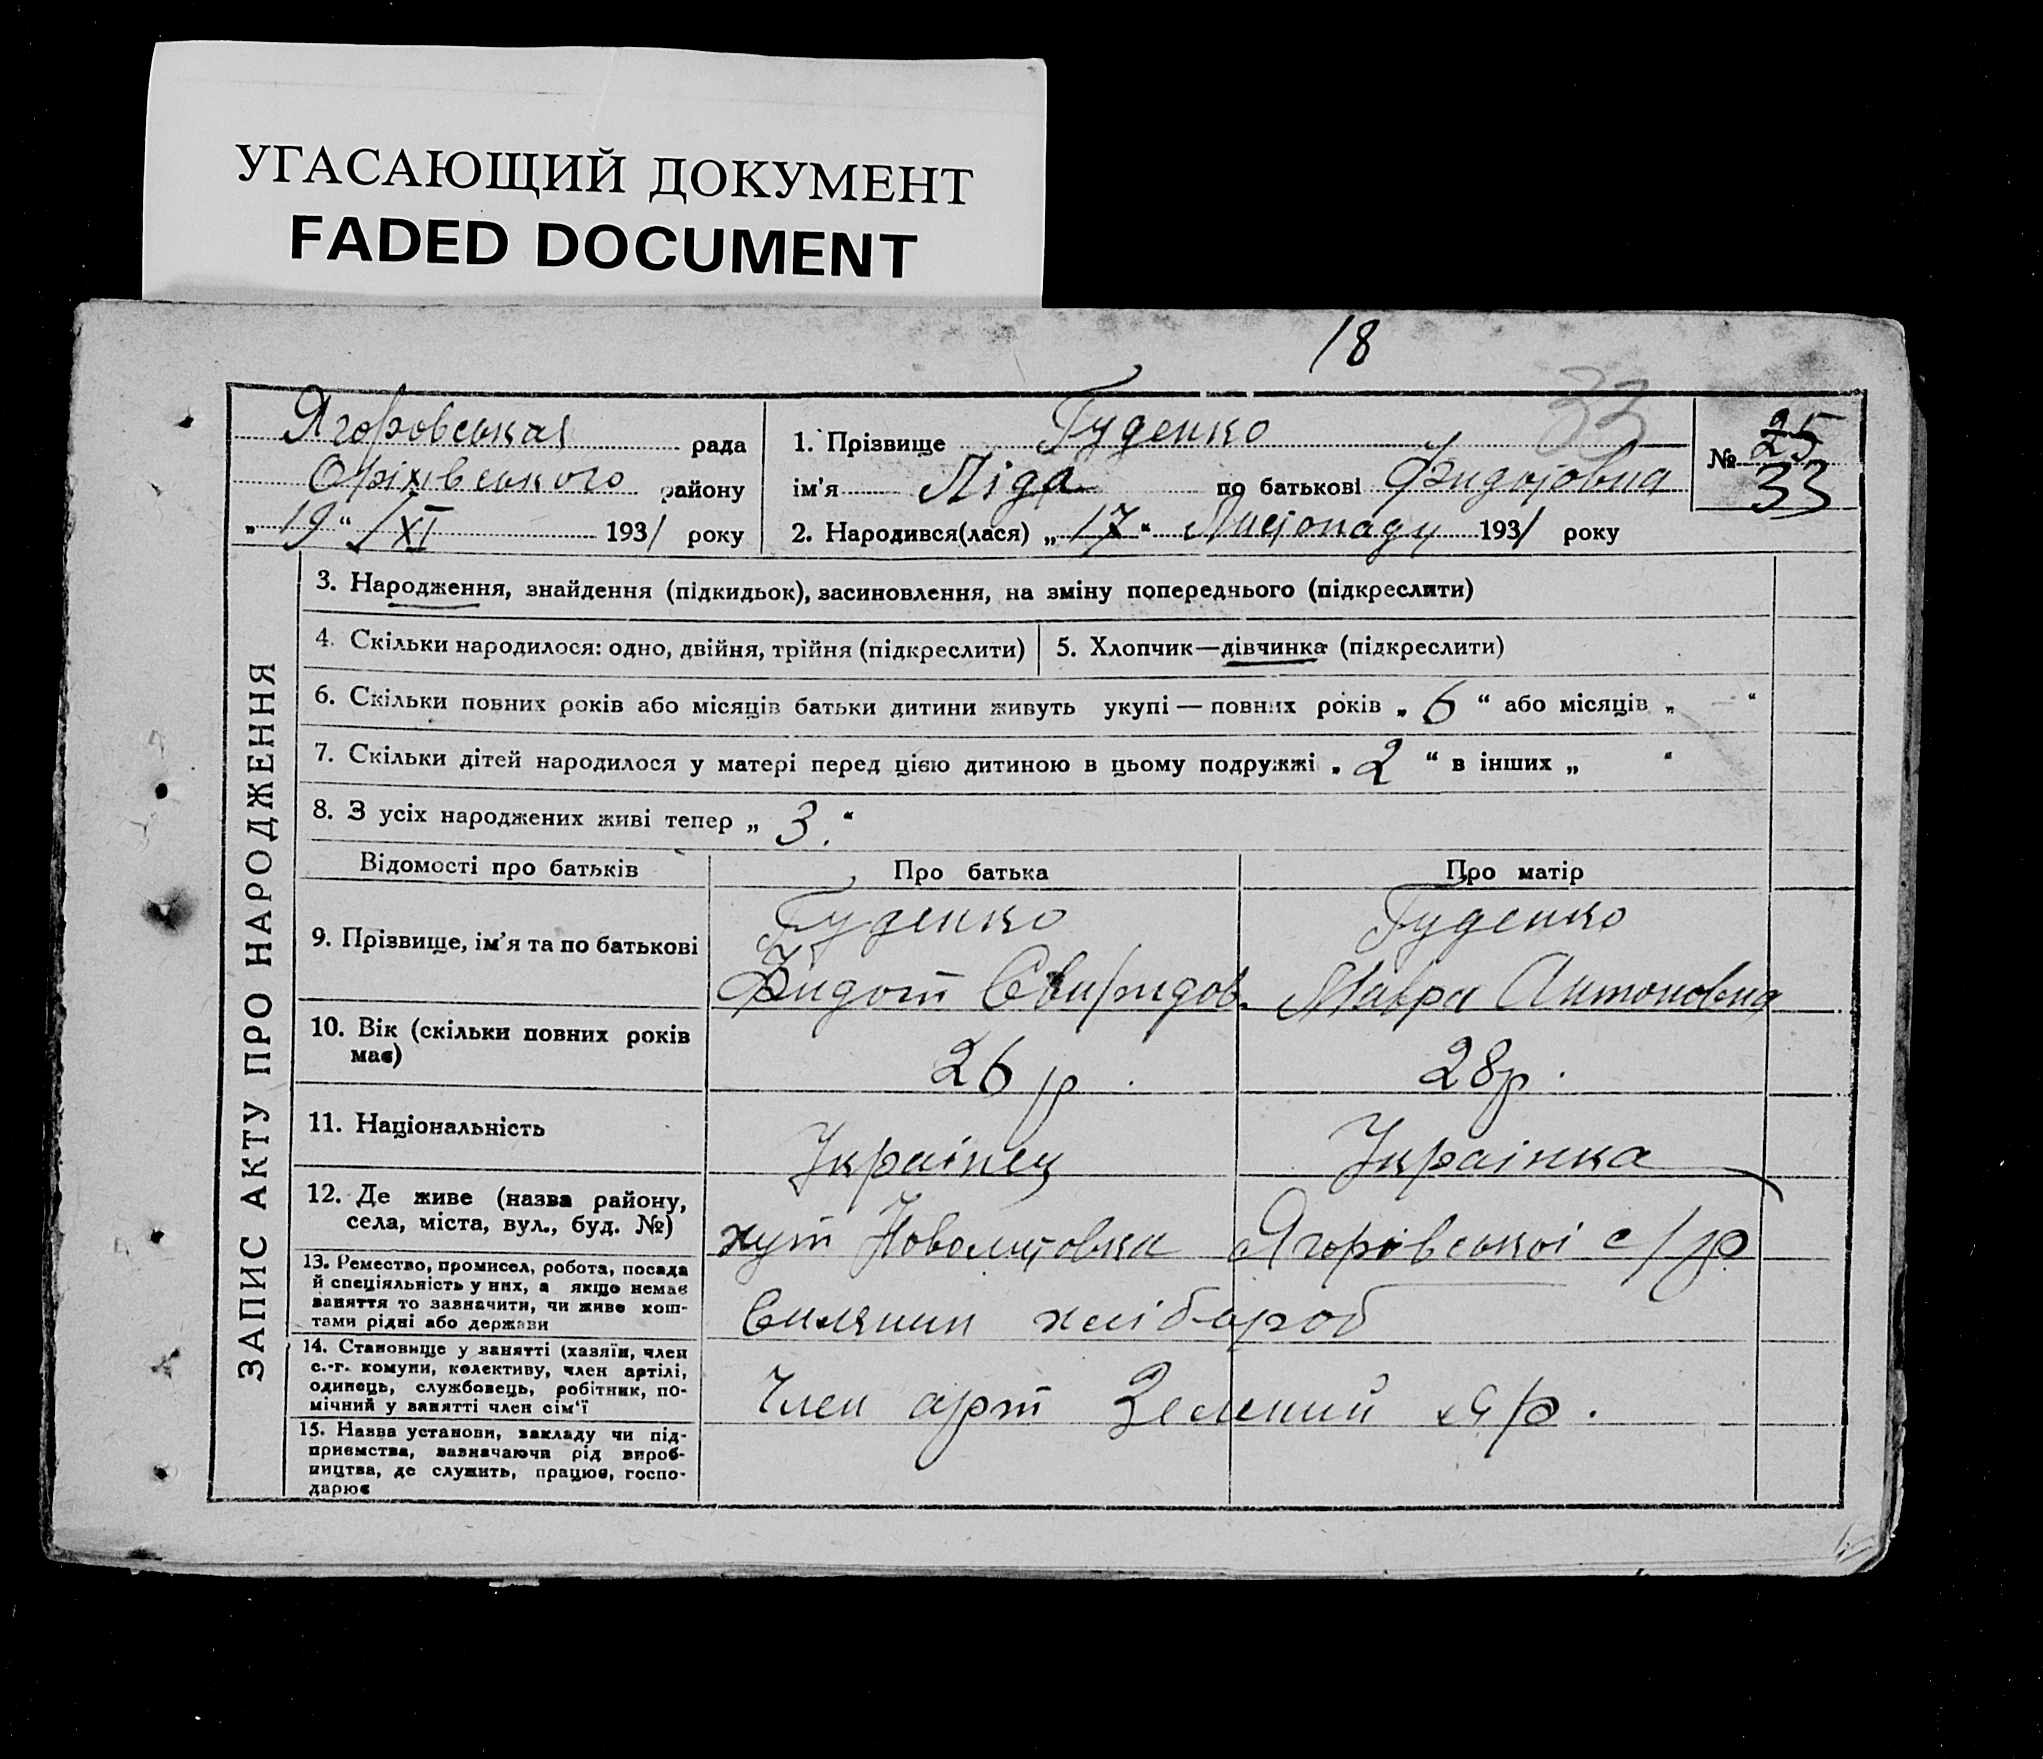 УГАСАЮЩИЙ ДОКУМЕНТ
FADED DOCUMENT
18
33
Ягоровська рада
Оріхівського району
„ 19 “ / XI 1931 року
1. Прізвище Гуденко
ім’я Ліда по батькові Фидотовна
№ 25
33
2. Народився(лася) „ 17 “ Листопаду 1931 року
ЗАПИС АКТУ ПРО НАРОДЖЕННЯ
3. Народження, знайдення (підкидьок), засиновлення, на зміну попереднього (підкреслити)
4. Скільки народилося: одно, двійня, трійня (підкреслити)
5. Хлопчик—дівчинка (підкреслити)
6. Скільки повних років або місяців батьки дитини живуть укупі — повних років „ 6 “ або місяців „ — “
7. Скільки дітей народилося у матері перед цією дитиною в цьому подружжі „ 2 “ в інших „ “
8. З усіх народжених живі тепер „ 3. “
Відомості про батьків Про батька Про матір
9. Прізвище, ім’я та по батькові
Гуденко Гуденко
Фидот Свиридов. Мавра Антоновна
10. Вік (скільки повних років
має)
26 р. 28 р.
11. Національність
Українец Українка
12. Де живе (назва району,
села, міста, вул., буд. №)
хут Ягорівської с/р
13. Ремество, промисел, робота, посада
й спеціяльність у них, а якщо немає
заняття то зазначити, чи живе кош-
тами рідні або держави
хлібороб
14. Становище у занятті (хазяїн, член
с.-г. комуни, колективу, член артілі,
одинець, службовець, робітник, по-
мічний у занятті член сім’ї
Член арт Зелений Яр.
15. Назва установи, закладу чи під-
приємства, зазначаючи рід вироб-
ництва, де служить, працює, госпо-
дарює